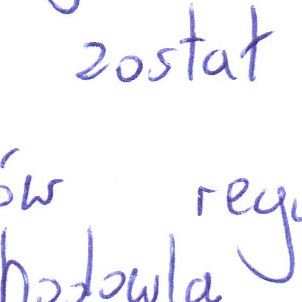 został
ów regu
hodowla